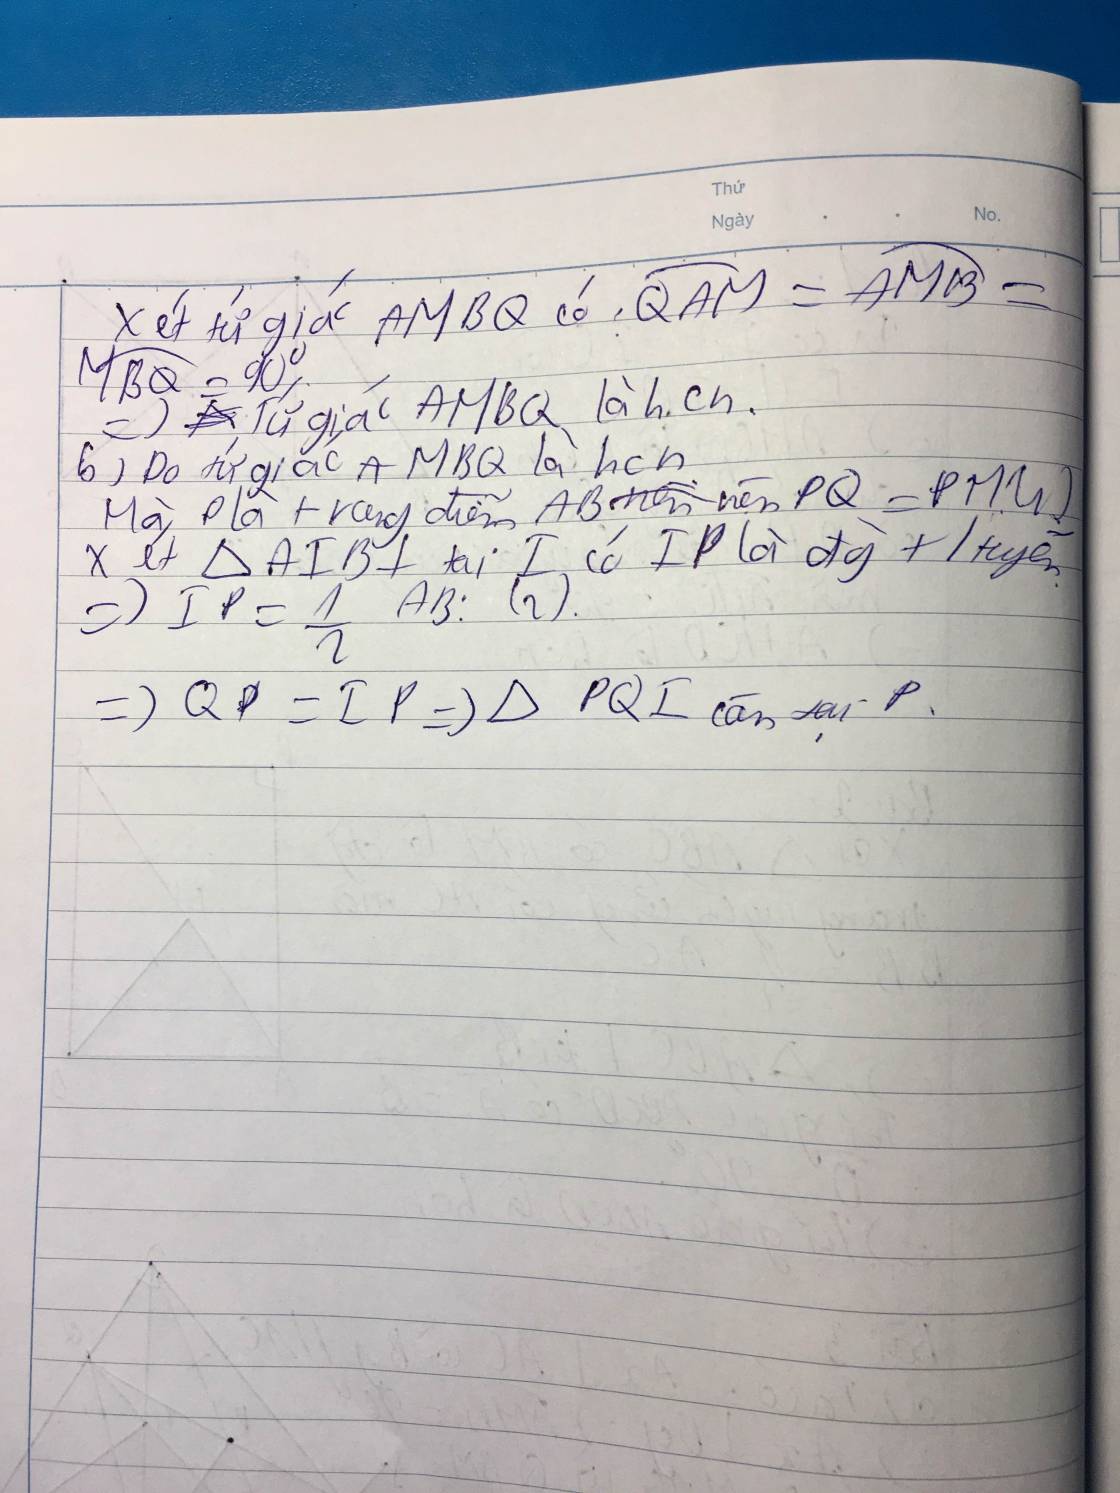 Thứ
Ngày . . No.
Xét tứ giác AMBQ có: QAM = AMB =
MBQ = 90°.
=) Tứ giác AMBQ là h.cn.
b) Do tứ giác AMBQ là hcn
Mà P là trung điểm AB nên PQ = PM (1)
Xét △ AIB ⊥ tại I có IP là đg t/tuyến
=) IP = 1/2 AB: (2).
=) QP = IP =) △ PQI cân tại P.